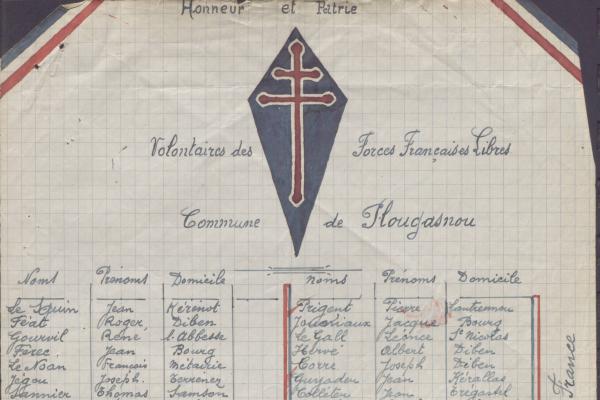 Honneur et Patrie
Volontaires des Forces Françaises Libres
Commune de Plougasnou
Noms Prénoms Domicile Noms Prénoms Domicile
Jean Kérénot Prigent Pierre
Féat Roger Diben Jacque Bourg
Gourvil René St Abbesse Le Gall Léonce St Nicolas
Férec Jean Bourg Hervé Albert Diben
Le Nan François Métairie Corre Joseph Diben
Jégou Joseph. Terrenez Guyader Jean Kérallas
Lannier Thomas Samson Jean Trégastel
France